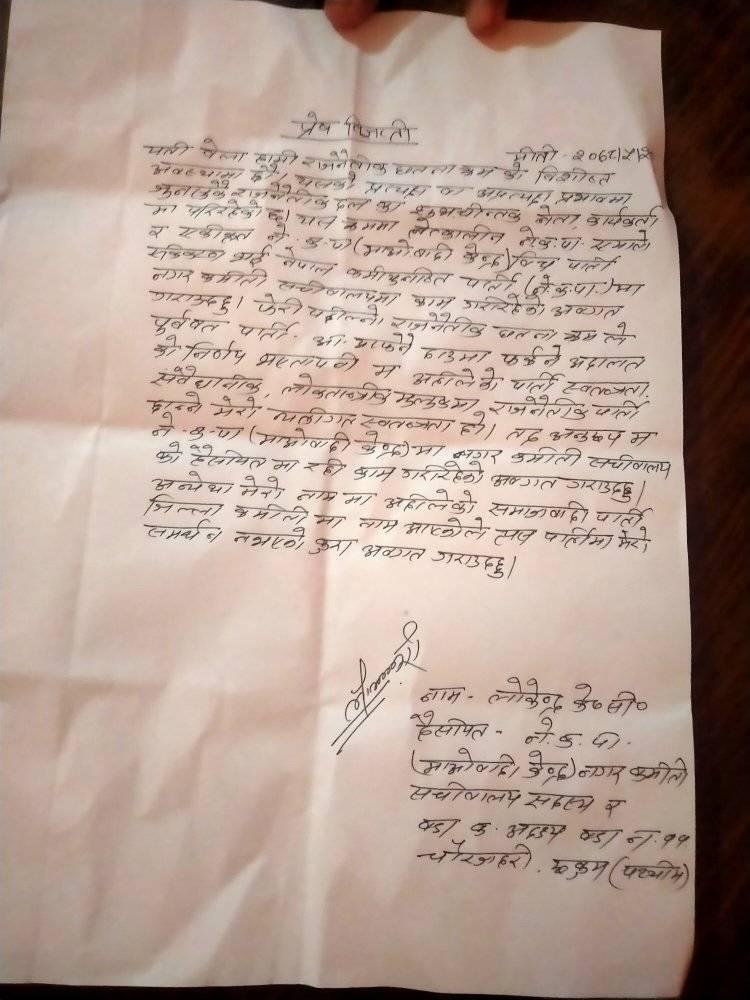 प्रेष विज्ञप्ती
मीती - २०७८।५।२
यती वेला हामी राजनैतीक घटना क्रम को विशीष्ट
अवस्थामा छौ। यसको प्रत्यक्ष वा अप्रत्यक्ष प्रभावमा
कुनरकै राजनैतीक दल का शुभचीन्तक नेता कार्यकर्ता
मा परिरहेको छ। यस क्रममा तत्कालीन ने.क.पा. एमाले
र एकीकृत ने. क. पा (माओवादी केन्द्र) विच पार्ती
एकिकरण भई नेपाल कमीयुनीष्ट पार्ती (ने.क.पा.) मा
नगर कमीती सचीवालयमा काम गरीरहेको अवगत
गराउदछु। फेरी पछील्लो राजनैतीक घतना क्रम ले
पुर्ववत पार्ती आ-आफनै ठाउमा फर्कने अदालत
को निर्णय भएतापनी म अहीलेको पार्ती स्वतन्त्रता,
संवैधानीक, लोकतान्त्रीक मुलुकमा, राजनैतीक पार्ती
छान्ने मेरो व्यक्तीगत स्वतन्त्रता हो। तद अनुरुप म
ने. क. पा (माओवादी केन्द्र) मा नगर कमीती सचीवालय
को हैसीयत मा रही काम गरीरहेको अवगत गराउदछु।
अन्यथा मेरो नाम मा अहीलेको समाजवादी पार्ती
जिल्ला कमीती मा नाम आएकोले त्यस पार्तीमा मेरो
समर्थन नभएको कुरा अवगत गराउदछु।
नाम - लोकेन्द्र के॰सी॰
हैसीयत - ने. क. पा.
(माओवादी केन्द्र) नगर कमीती
सचीवालय सदस्य र
वडा क. अध्यक्ष वडा न. ११
चौरजहारी, रुकुम (पश्चीम)